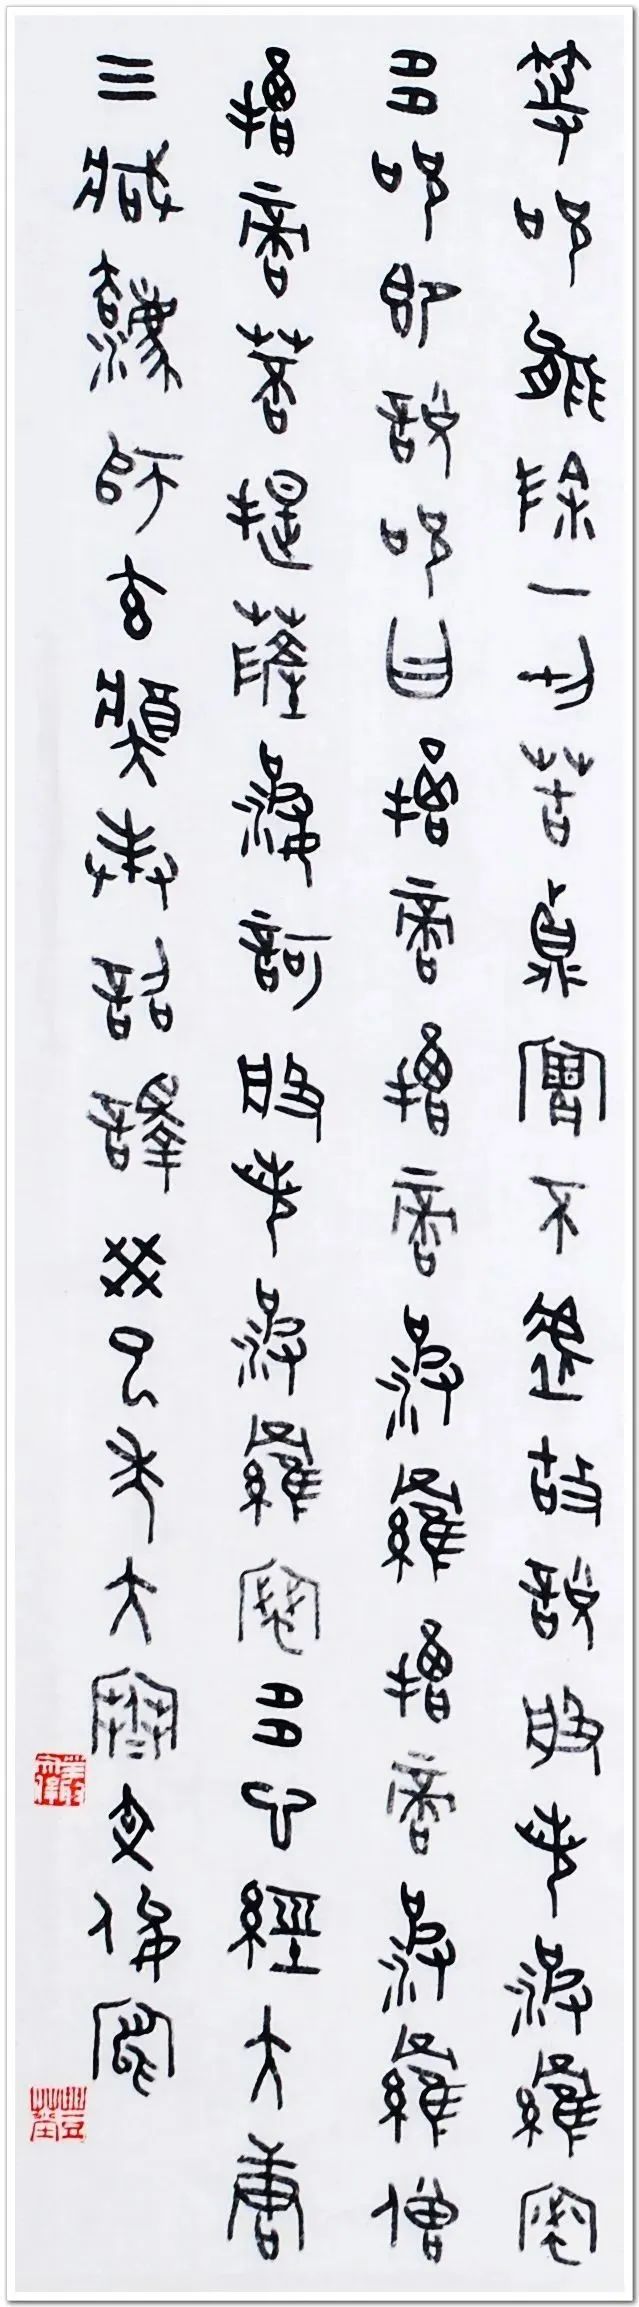 等咒能除一切苦真實不虛故說般若波羅蜜
多咒即說咒曰揭諦揭諦波羅揭諦波羅僧
揭諦菩提薩婆訶般若波羅蜜多心經大唐
三藏法師玄奘奉詔譯癸巳年大寒文